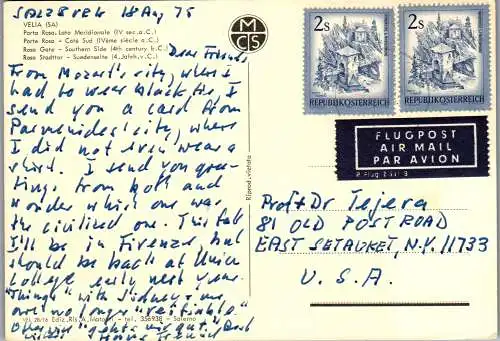 SALZBURG 18 Aug 75
VELIA (SA)
Porta Rosa, Lato Meridionale (IV sec. a.C.)
Porte Rosa - Côté Sud (IVème siècle a.C.)
Rosa Gate - Southern Side (4th century b.C.)
Rosa Stadttor - Suedenseite (4. Jahrh. v.C.)
MCS
Dear Friends,
From Mozart's city, where I
had to wear black tie, I
send you a card from
Parmenides' city, where
I did not even wear a
shirt. I send you gree-
tings from both and
wonder which one was
the civilized one. This fall
I'll be in Firenze, but
should be back at Union
College early next year.
"Things" with Sidney + me
are no longer
"geht's mir gut."
Hans
121 28/76 Ediz. Ris. A. Matonti - tel. 356938 - Salerno
Riprod. vietata
2s
REPUBLIK ÖSTERREICH
2s
REPUBLIK ÖSTERREICH
FLUGPOST
AIR MAIL
PAR AVION
Prof. Dr Tejera
81 OLD POST ROAD
EAST SETAUKET, N.Y. 11733
U.S.A.